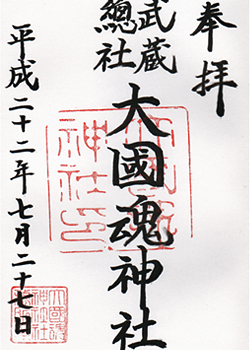 奉拝
武蔵
總社
大國魂神社
平成二十二年七月二十七日